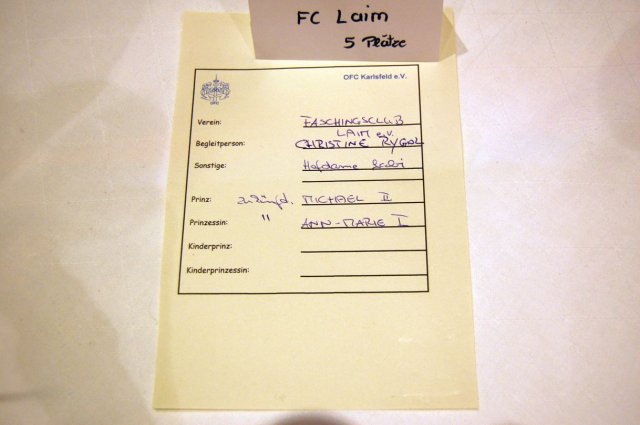 FC Laim
5 Plätze
OFC Karlsfeld e.V.
Verein: FASCHINGSCLUB
LAIM e.V.
Begleitperson: CHRISTINE RYGOL
Sonstige: Hofdame Gabi
Prinz: zukünftd. MICHAEL II
Prinzessin: " ANN-MARIE I
Kinderprinz:
Kinderprinzessin: